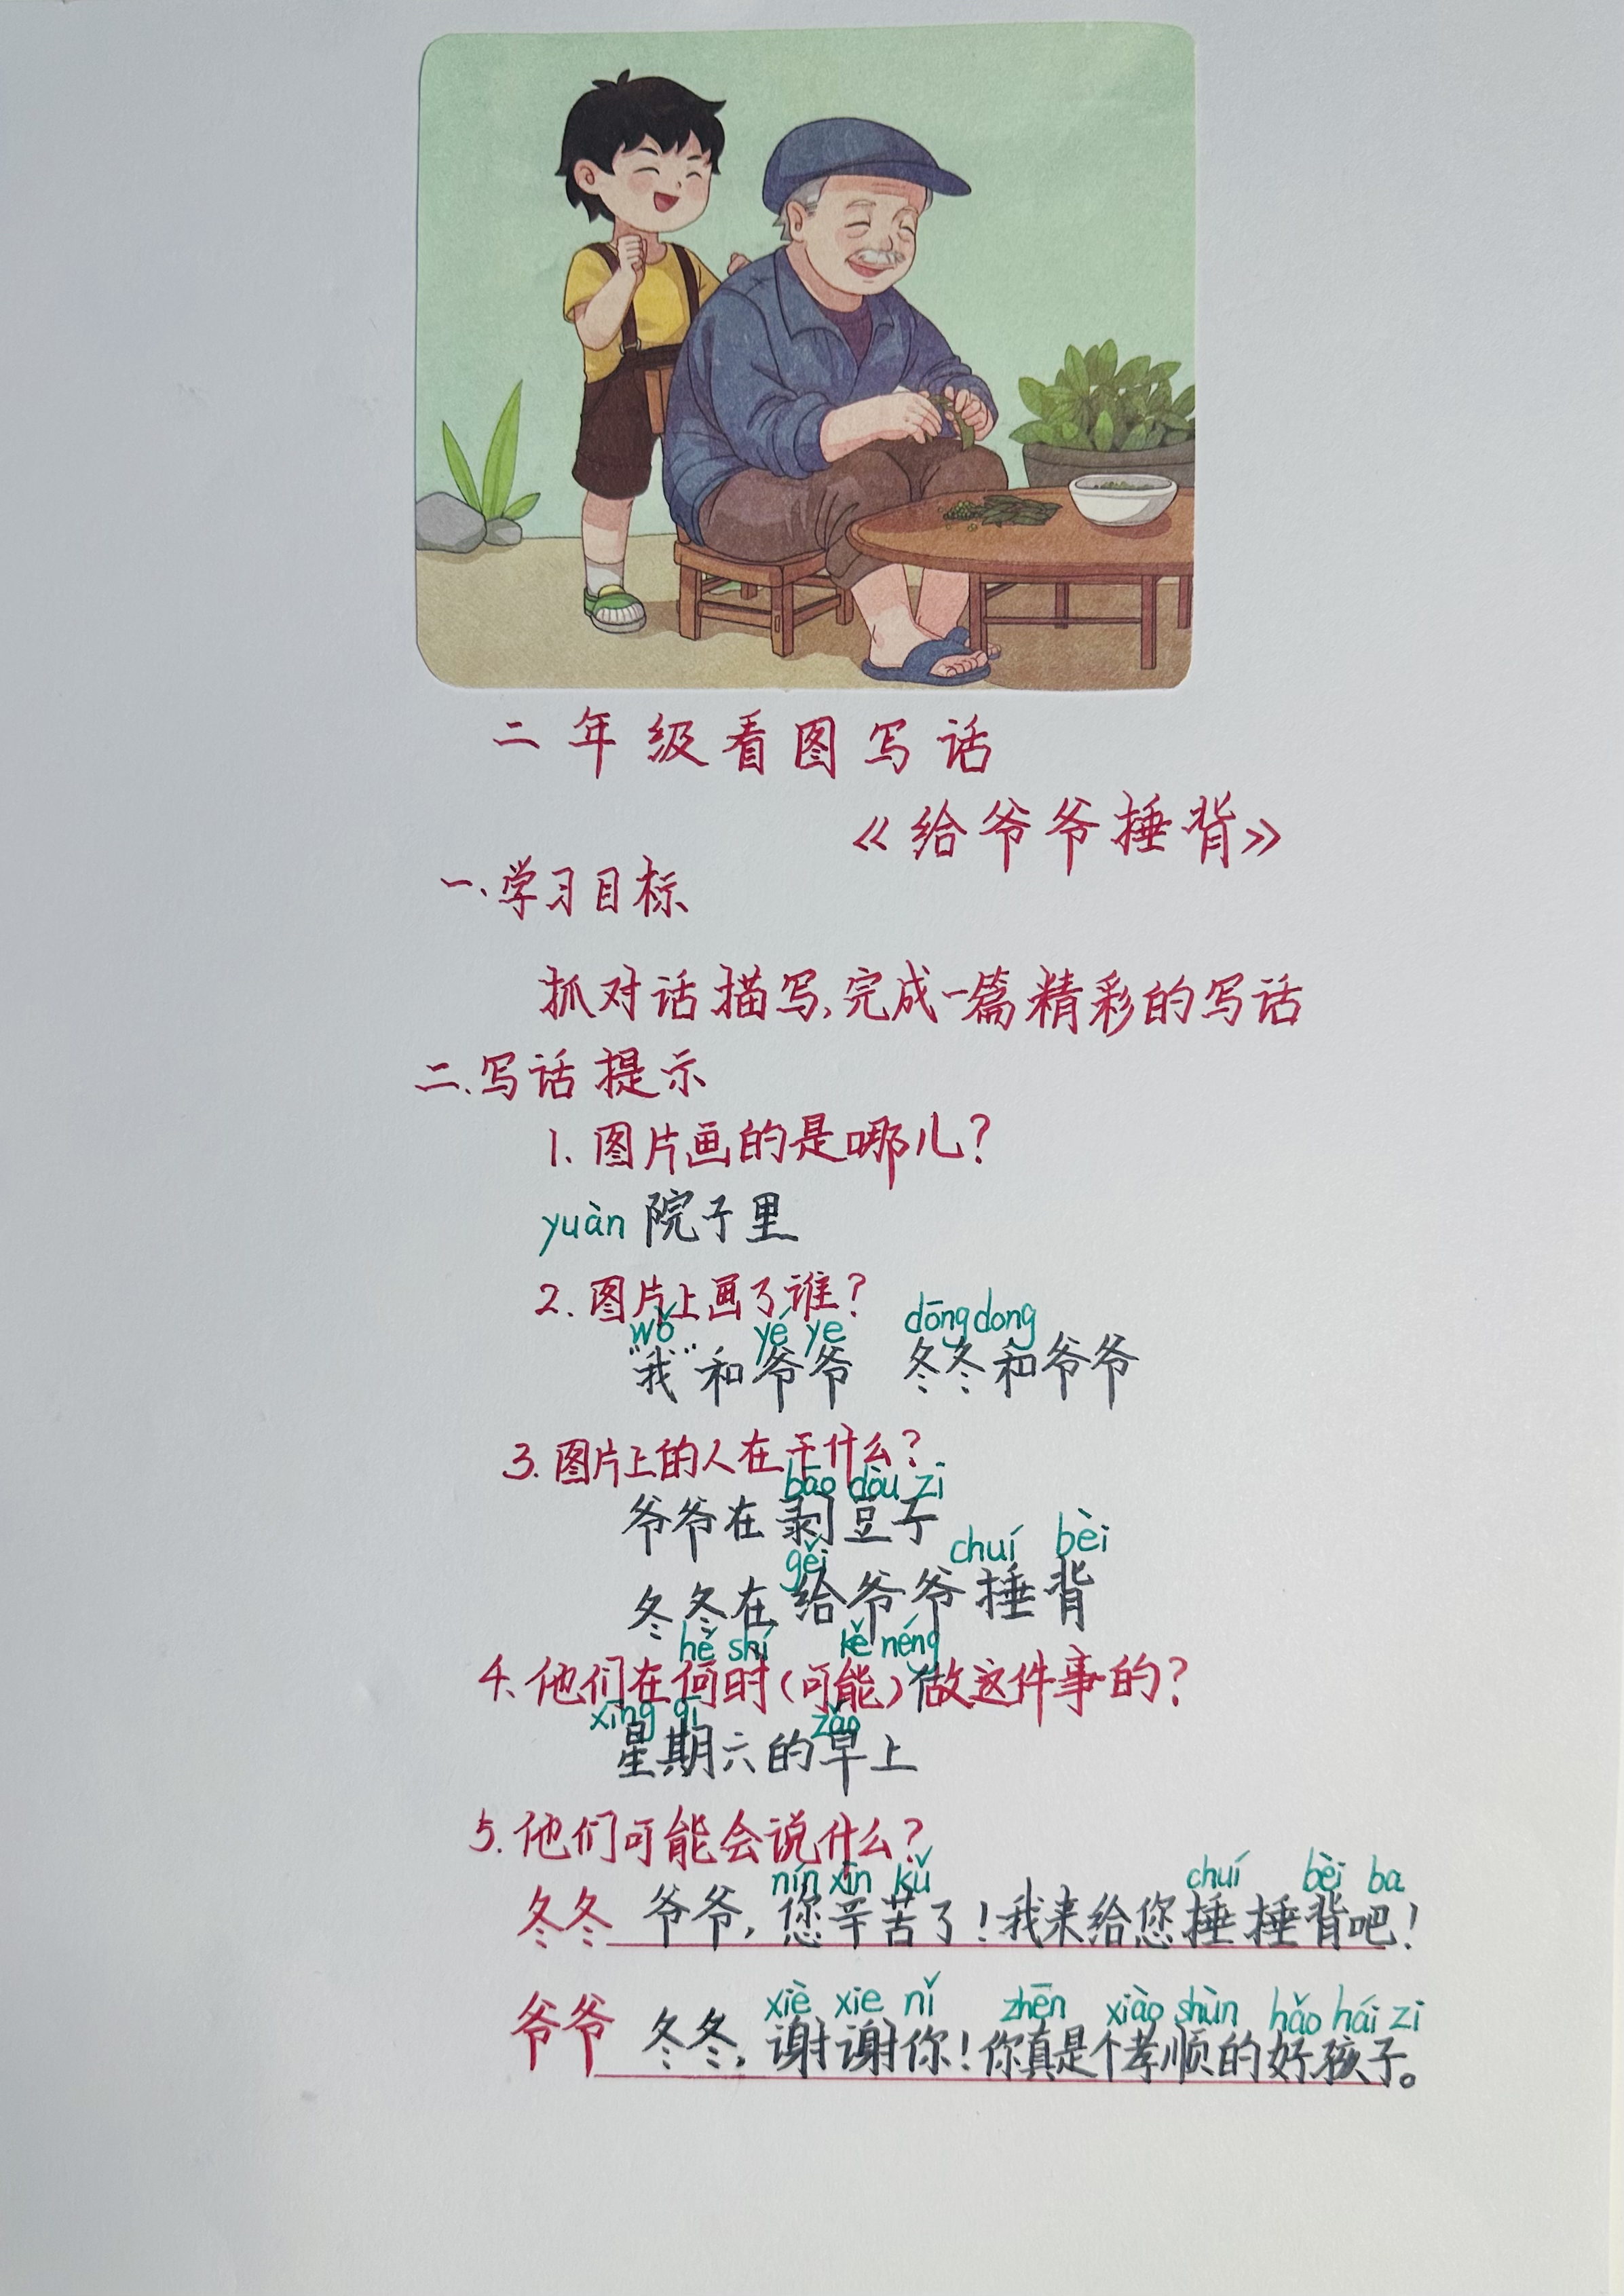 二年级看图写话
《给爷爷捶背》
一、学习目标
抓对话描写,完成一篇精彩的写话
二、写话提示
1、图片画的是哪儿?
yuàn 院子里
2、图片上画了谁?
wǒ yé ye dōngdong
"我"和爷爷 冬冬和爷爷
3、图片上的人在干什么?
bāo dòu zi
爷爷在剥豆子
gěi chuí bèi
冬冬在给爷爷捶背
hé shí kě néng
4、他们在何时(可能)做这件事的?
xīng qī zǎo
星期六的早上
5、他们可能会说什么?
nín xīn kǔ chuí bèi ba
冬冬 爷爷,您辛苦了!我来给您捶捶背吧!
xiè xie nǐ zhēn xiào shùn hǎo hái zi
爷爷 冬冬,谢谢你!你真是个孝顺的好孩子。